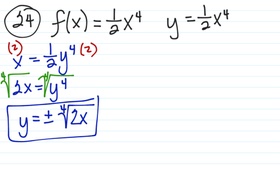 24 f(x) = 1/2 x⁴ y = 1/2 x⁴
(2) x = 1/2 y⁴ (2)
⁴√2x = ⁴√y⁴
y = ± ⁴√2x